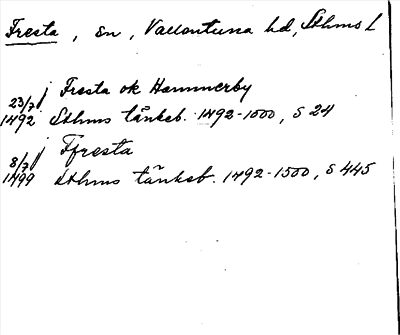 Fresta, sn, Vallentuna hd, Sthms l
j Fresta ok Hammerby
23/7 1492 Sthms tänkeb. 1492-1500, s 24
j Ffresta
8/7 1499 Sthms tänkeb. 1492-1500, s 445